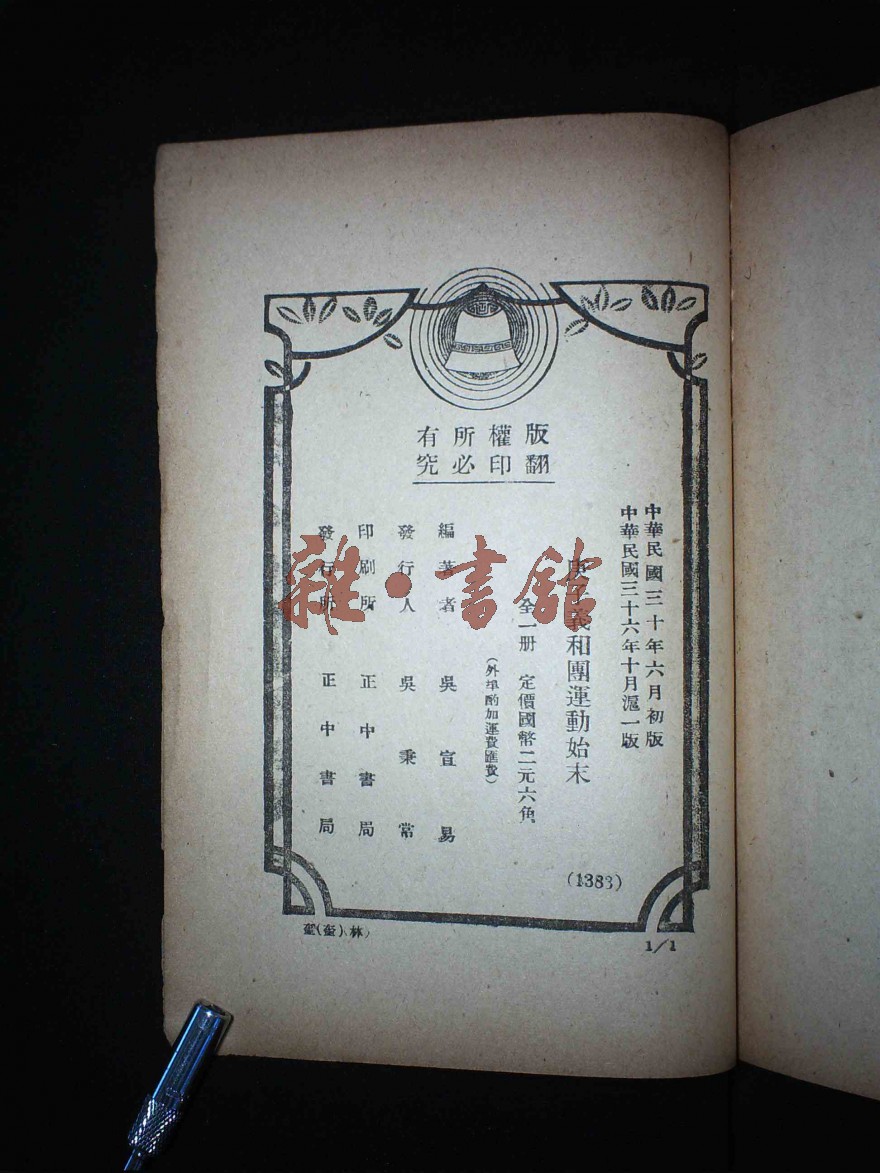 版權所有
翻印必究
中華民國三十年六月初版
中華民國三十六年十月滬一版
庚子義和團運動始末
全一册 定價國幣二元六角
(外埠酌加運費匯費)
編著者 吳宣易
發行人 吳秉常
印刷所 正中書局
發行所 正中書局
(1383)
1/1
雜·書館